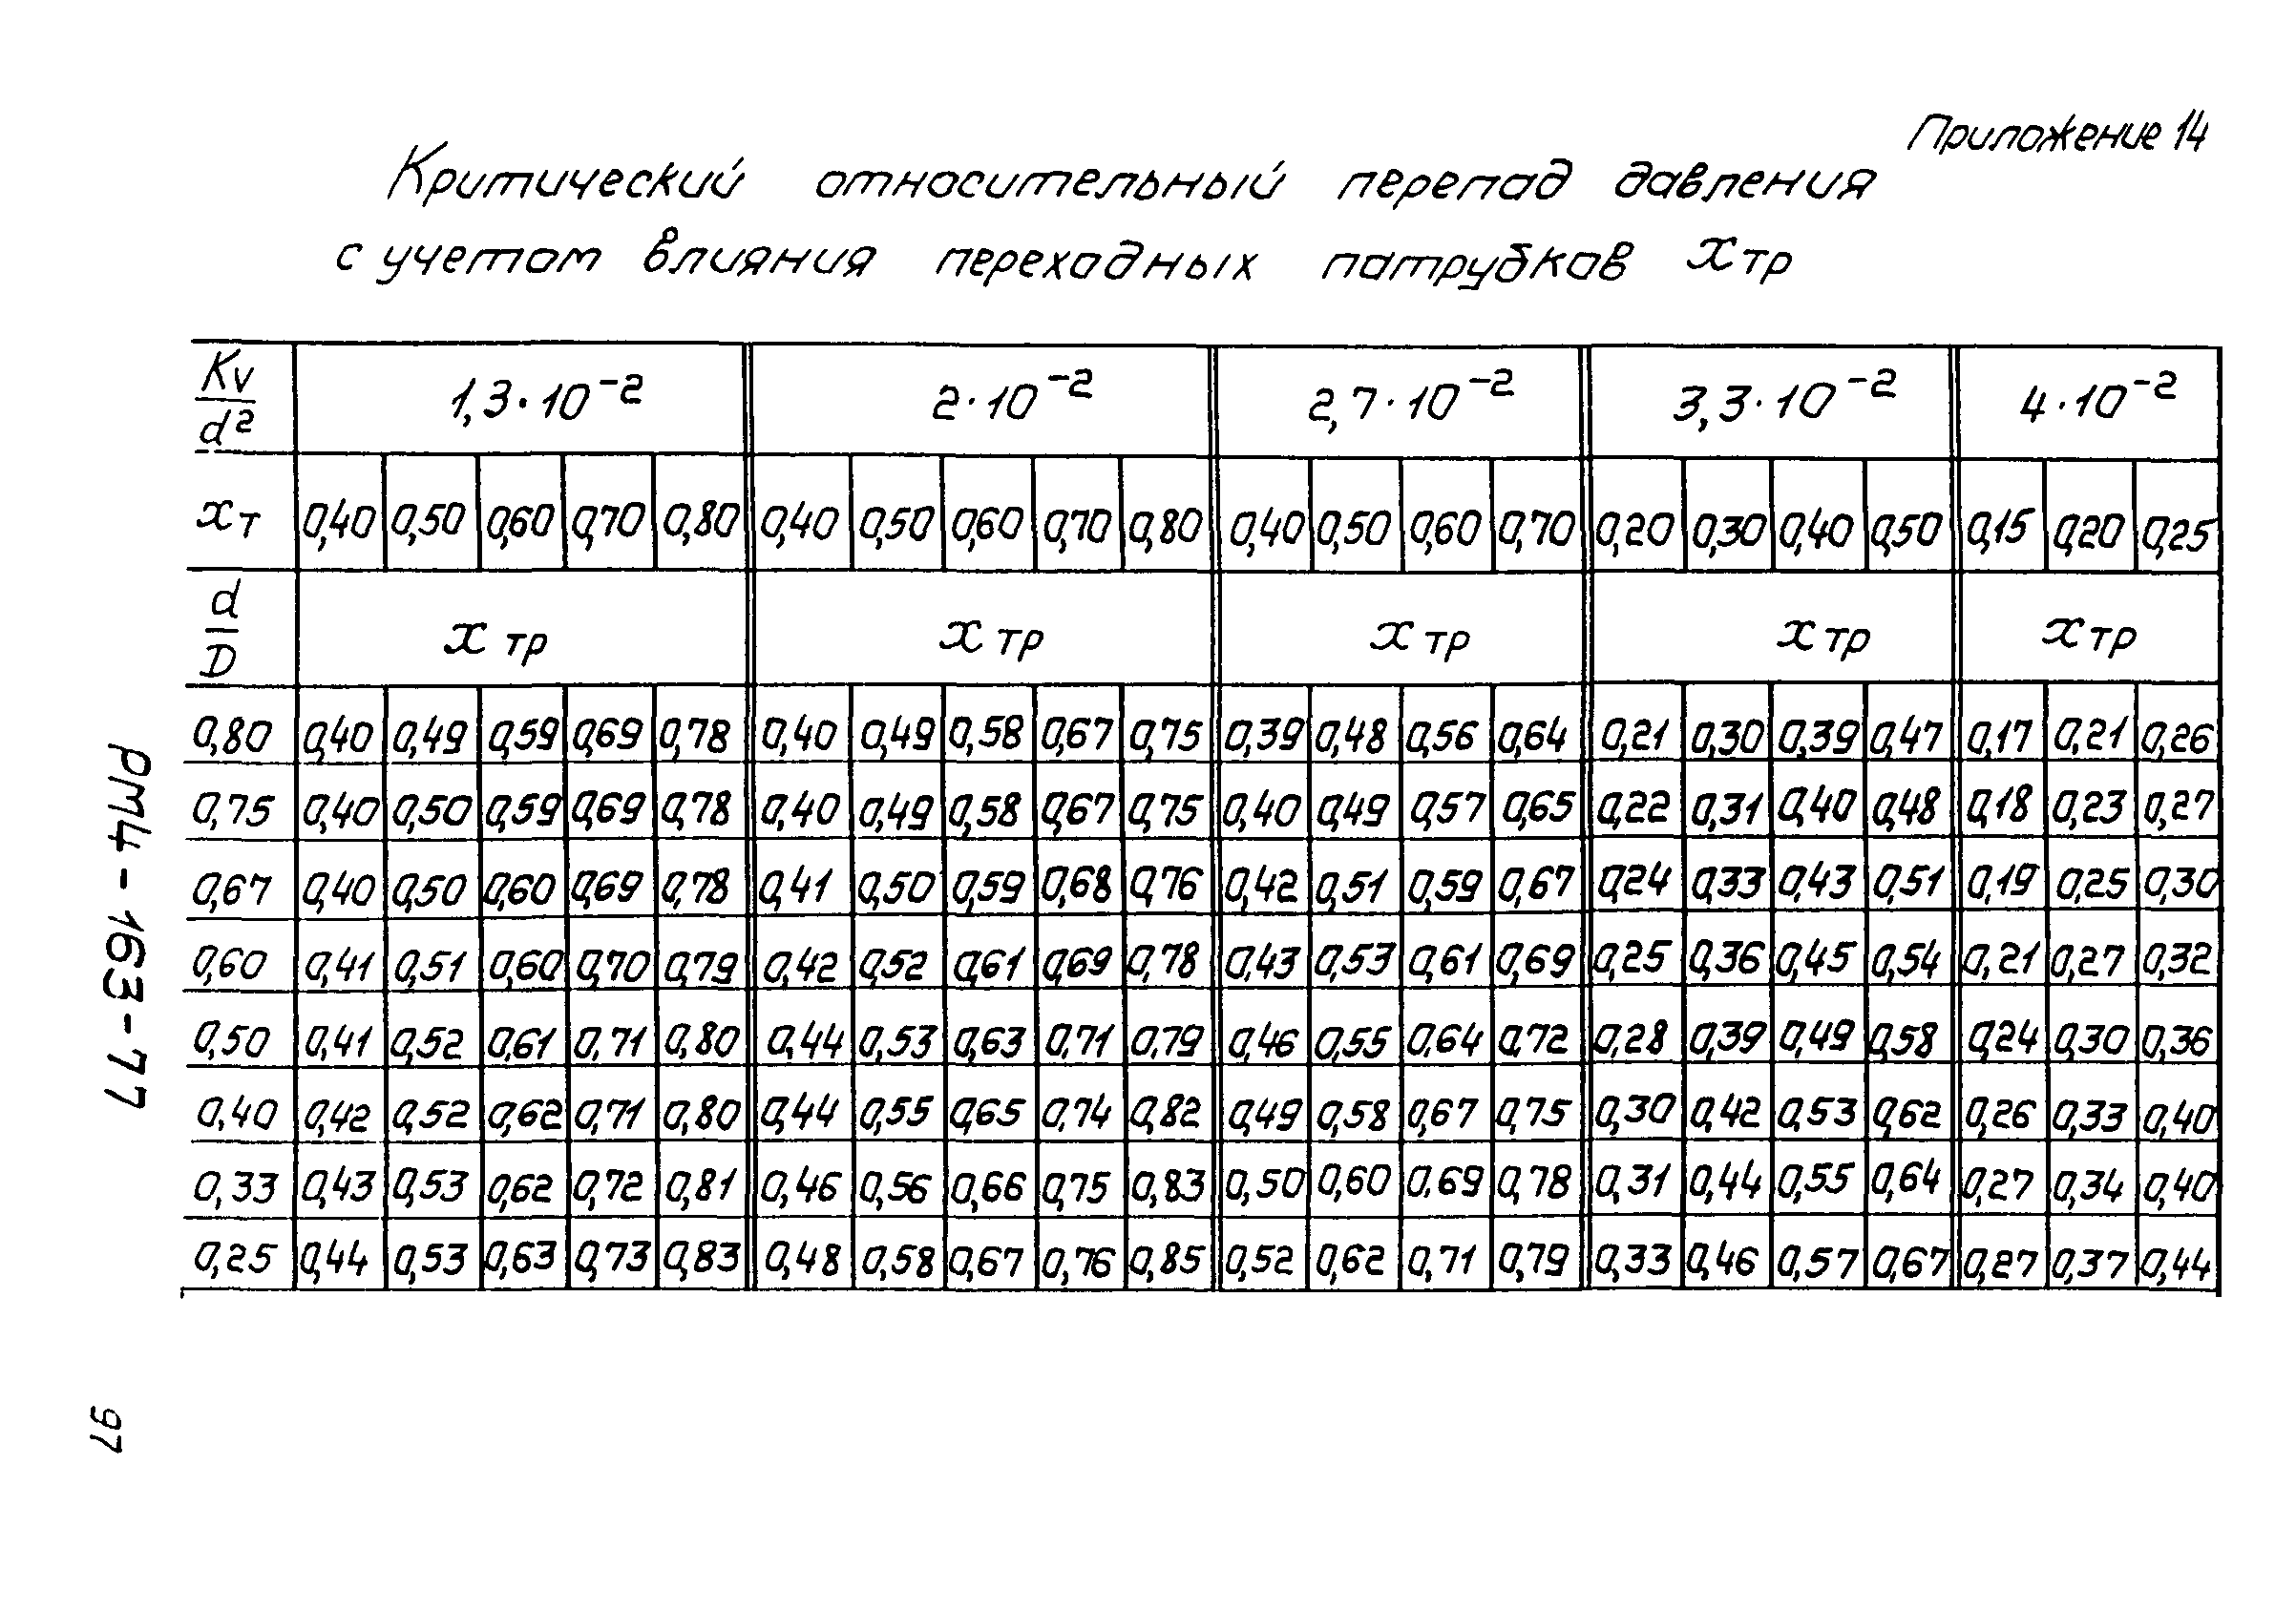 Приложение 14
Критический относительный перепад давления
с учетом влияния переходных патрубков xтр
Kv/d² 1,3·10⁻² 2·10⁻² 2,7·10⁻² 3,3·10⁻² 4·10⁻²
xт 0,40 0,50 0,60 0,70 0,80 0,40 0,50 0,60 0,70 0,80 0,40 0,50 0,60 0,70 0,20 0,30 0,40 0,50 0,15 0,20 0,25
d/D xтр xтр xтр xтр xтр
0,80 0,40 0,49 0,59 0,69 0,78 0,40 0,49 0,58 0,67 0,75 0,39 0,48 0,56 0,64 0,21 0,30 0,39 0,47 0,17 0,21 0,26
0,75 0,40 0,50 0,59 0,69 0,78 0,40 0,49 0,58 0,67 0,75 0,40 0,49 0,57 0,65 0,22 0,31 0,40 0,48 0,18 0,23 0,27
0,67 0,40 0,50 0,60 0,69 0,78 0,41 0,50 0,59 0,68 0,76 0,42 0,51 0,59 0,67 0,24 0,33 0,43 0,51 0,19 0,25 0,30
0,60 0,41 0,51 0,60 0,70 0,79 0,42 0,52 0,61 0,69 0,78 0,43 0,53 0,61 0,69 0,25 0,36 0,45 0,54 0,21 0,27 0,32
0,50 0,41 0,52 0,61 0,71 0,80 0,44 0,53 0,63 0,71 0,79 0,46 0,55 0,64 0,72 0,28 0,39 0,49 0,58 0,24 0,30 0,36
0,40 0,42 0,52 0,62 0,71 0,80 0,44 0,55 0,65 0,74 0,82 0,49 0,58 0,67 0,75 0,30 0,42 0,53 0,62 0,26 0,33 0,40
0,33 0,43 0,53 0,62 0,72 0,81 0,46 0,56 0,66 0,75 0,83 0,50 0,60 0,69 0,78 0,31 0,44 0,55 0,64 0,27 0,34 0,40
0,25 0,44 0,53 0,63 0,73 0,83 0,48 0,58 0,67 0,76 0,85 0,52 0,62 0,71 0,79 0,33 0,46 0,57 0,67 0,27 0,37 0,44
РМ4-163-77
97